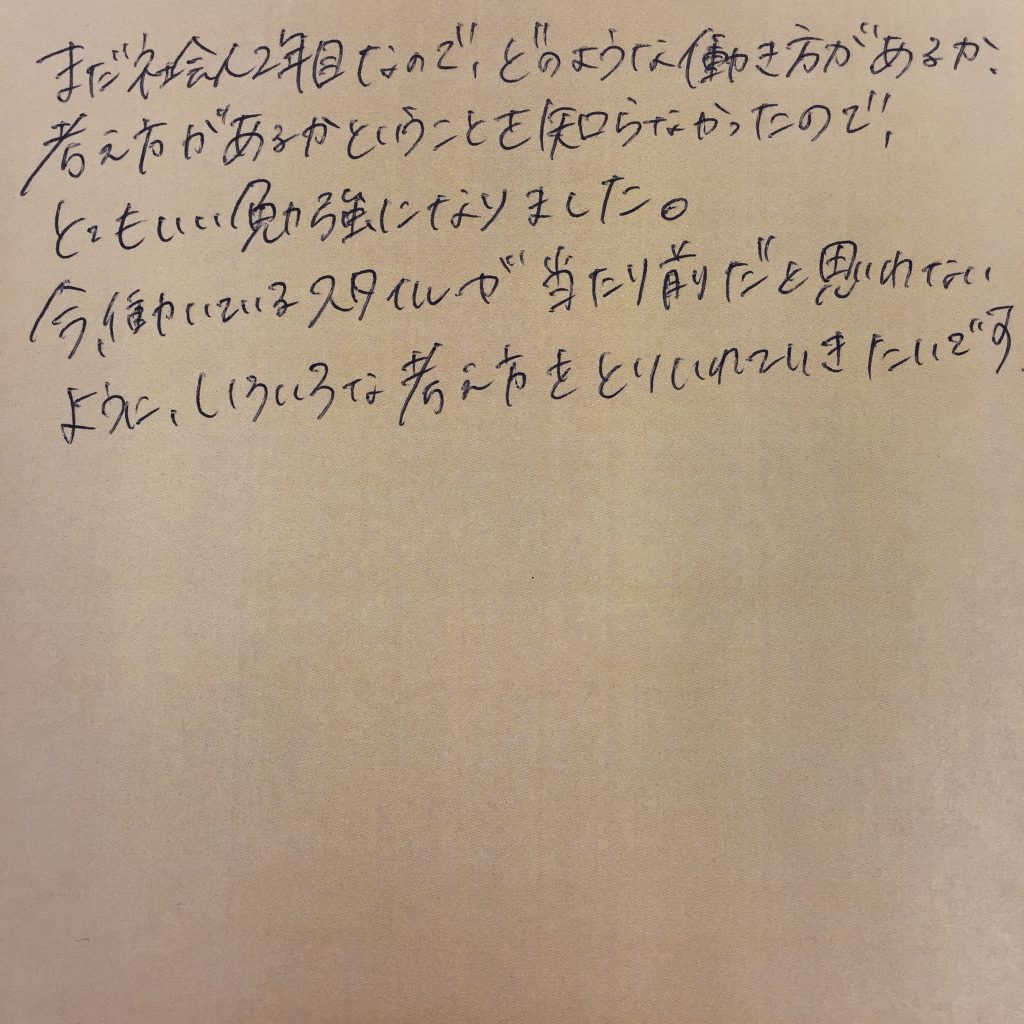 まだ社会人2年目なので、どのような働き方があるか、
考え方があるかということを知らなかったので、
とてもいい勉強になりました。
今、働いているスタイルが当たり前だと思われない
ように、いろいろな考え方をとりいれていきたいです。